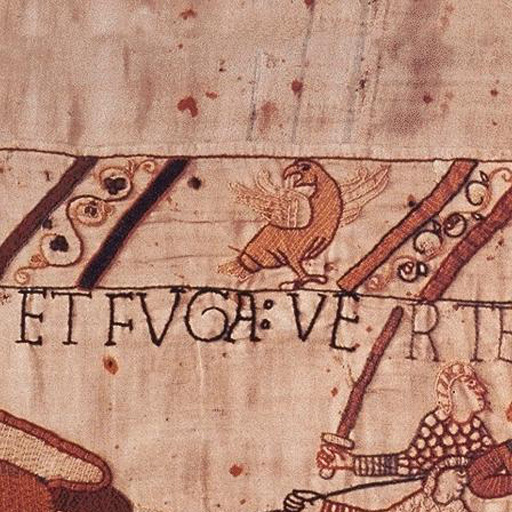 ET FVGA: VERTE